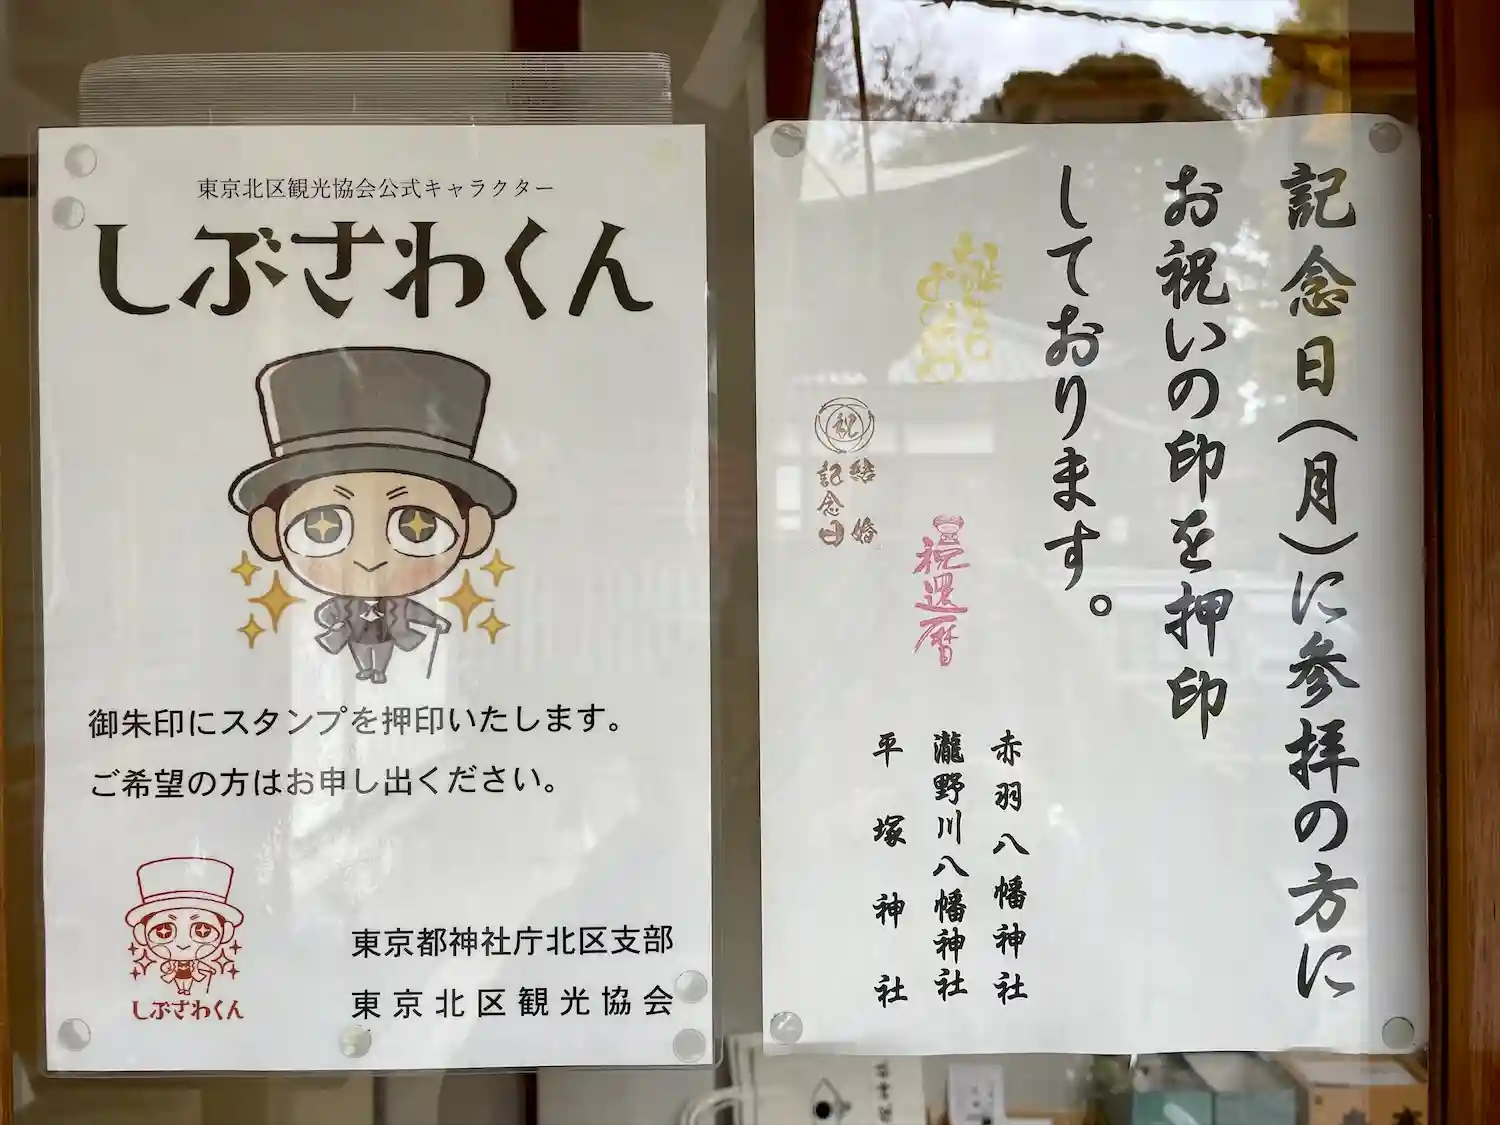 東京北区観光協会公式キャラクター
しぶさわくん
御朱印にスタンプを押印いたします。
ご希望の方はお申し出ください。
しぶさわくん
東京都神社庁北区支部
東京北区観光協会
記念日(月)に参拝の方に
お祝いの印を押印
しております。
祝
結婚
記念日
祝還暦
赤羽八幡神社
瀧野川八幡神社
平塚神社